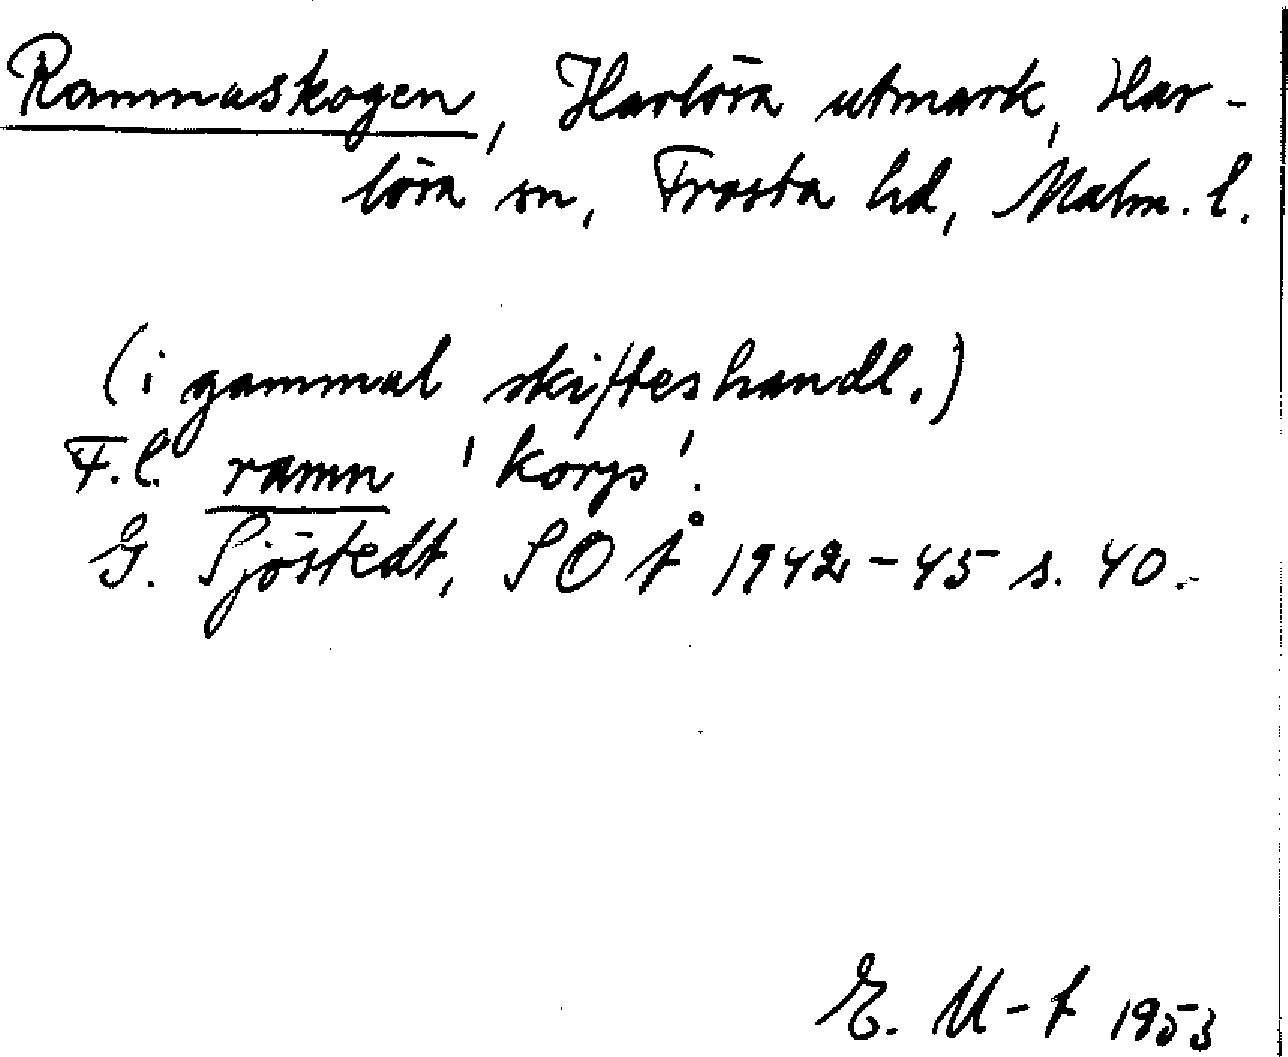 Ramnaskogen, Harlösa utmark, Har-
lösa sn, Frosta hd, Malm. l.
(i gammal skifteshandl.)
F.l. ramn 'korp'.
G. Sjöstedt, SOÅ 1942-45 s. 40.
E. M-t 1953